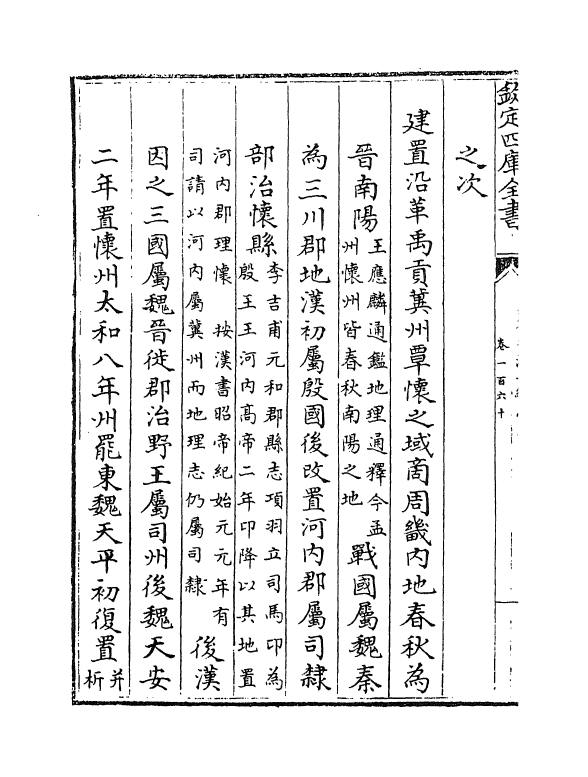 欽定四庫全書
卷一百六十
之次
建置沿革禹貢冀州覃懷之域商周畿内地春秋為
晉南陽王應麟通鑑地理通釋今孟
州懷州皆春秋南陽之地戰國屬魏秦
為三川郡地漢初屬殷國後改置河内郡屬司隸
部治懷縣李吉甫元和郡縣志項羽立司馬卬為
殷王王河内髙帝二年卬降以其地置
河内郡理懷 按漢書昭帝紀始元元年有
司請以河内屬冀州而地理志仍屬司隸後漢
因之三國屬魏晉徙郡治野王屬司州後魏天安
二年置懷州太和八年州罷東魏天平初復置并
析